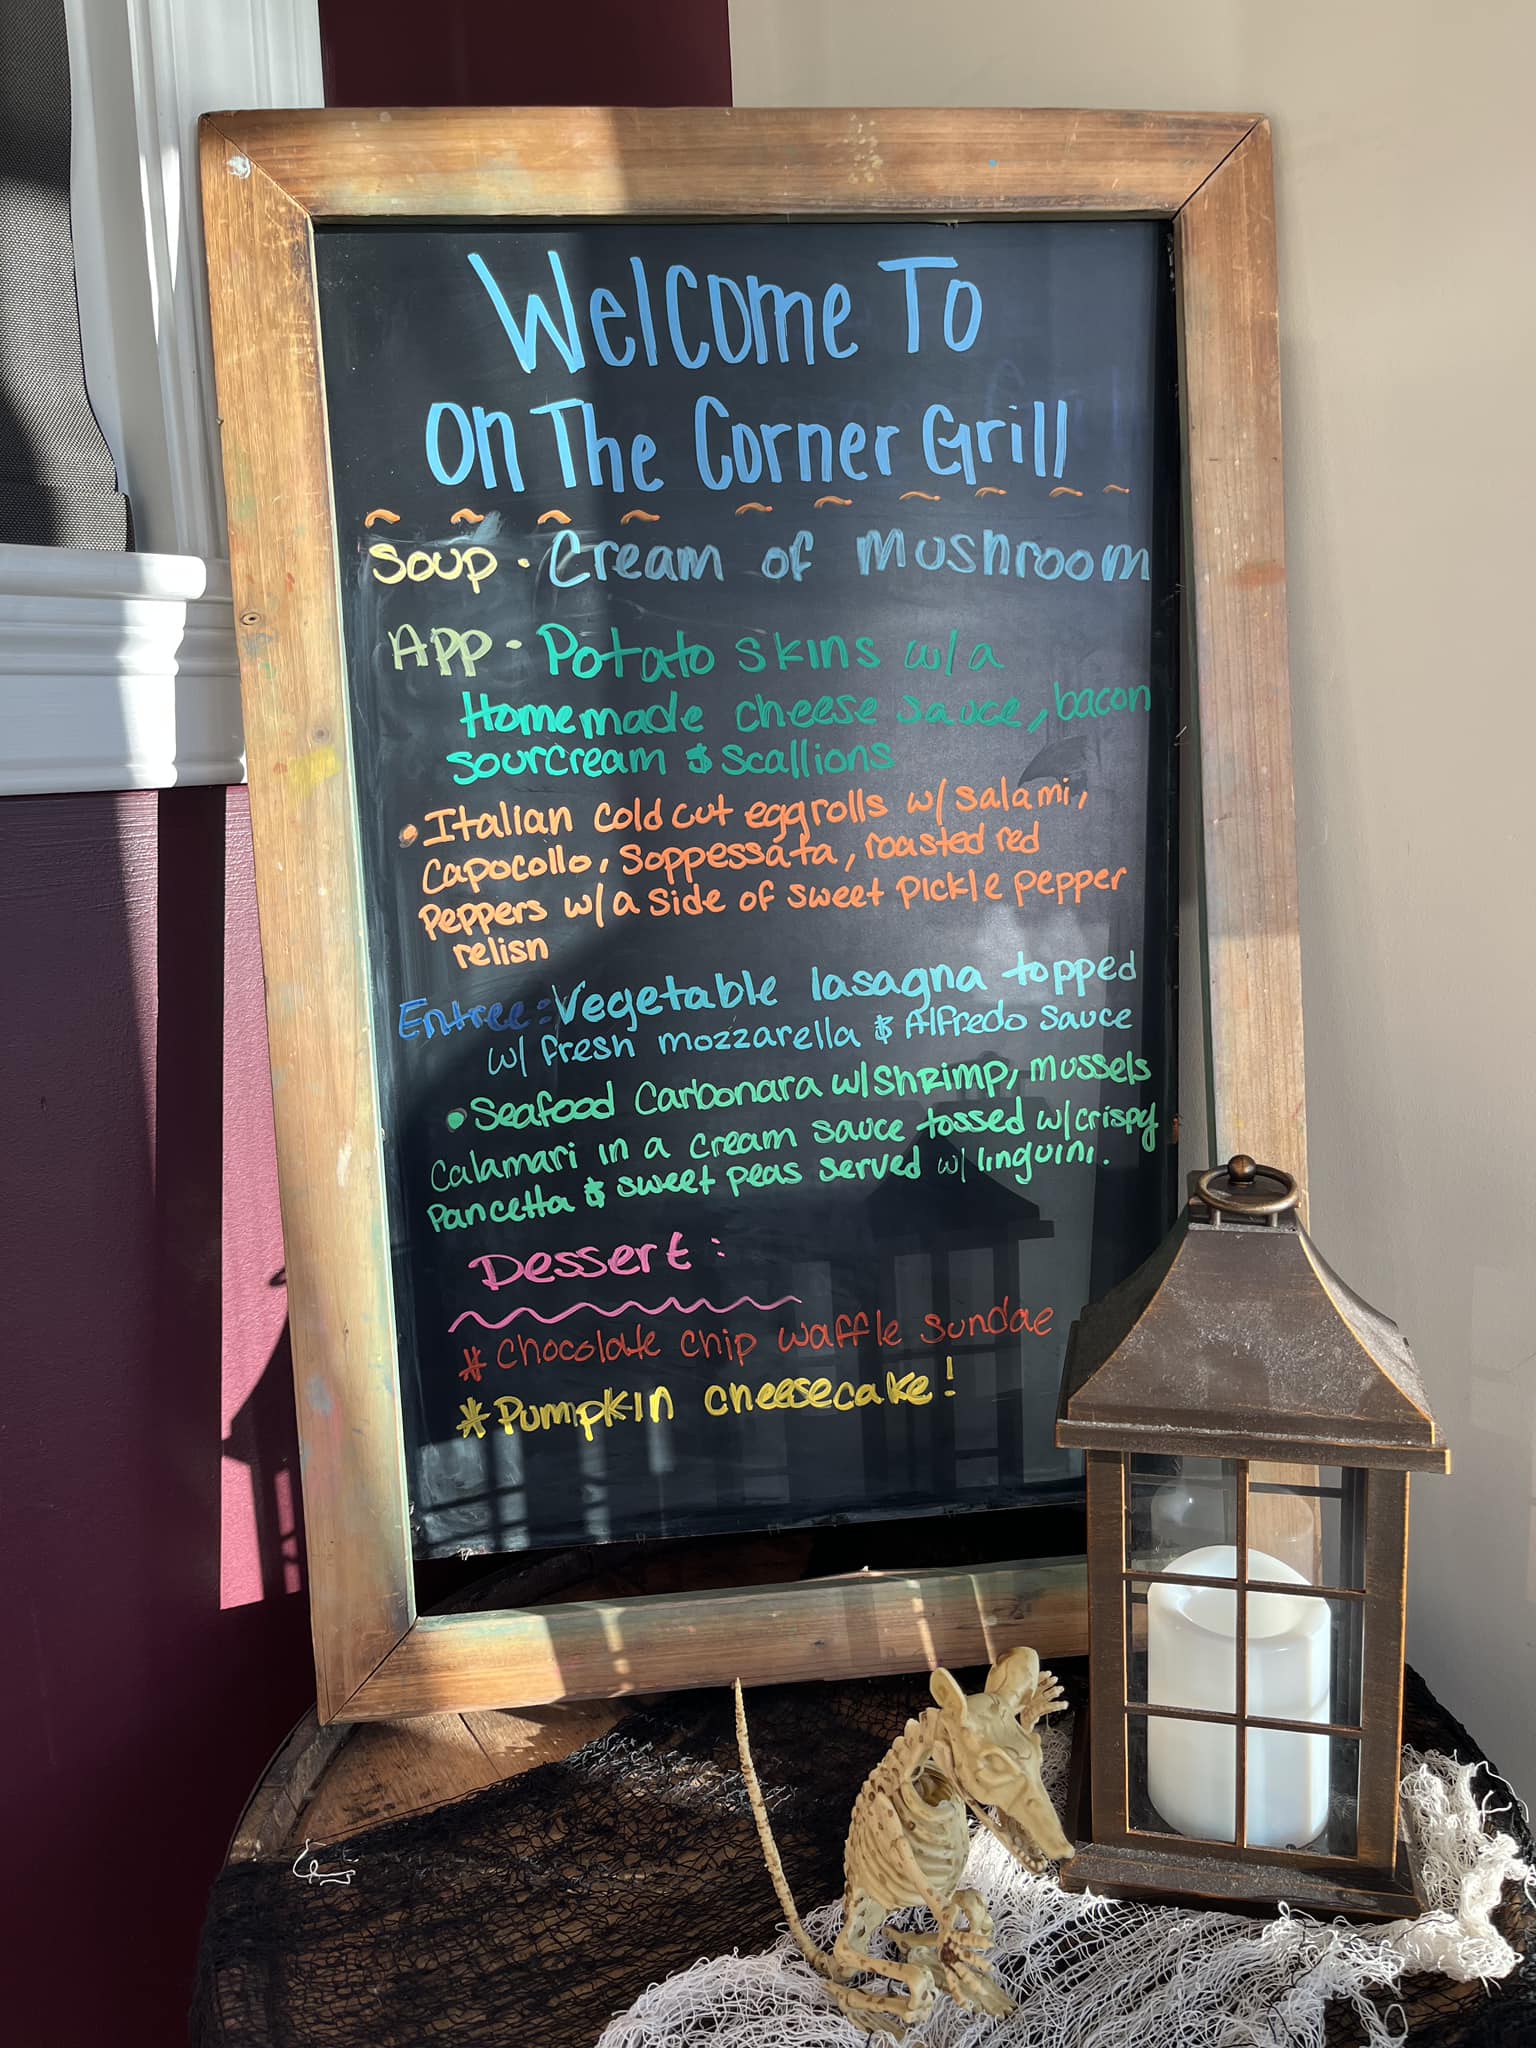 Welcome To
On The Corner Grill
Soup · Cream of mushroom
App · Potato skins w/a
Homemade cheese sauce, bacon
sourcream & scallions
• Italian cold cut eggrolls w/ salami,
Capocollo, Soppessata, roasted red
Peppers w/a side of sweet pickle pepper
relish
Entree: Vegetable lasagna topped
w/ fresh mozzarella & Alfredo sauce
• Seafood Carbonara w/ shrimp, mussels
Calamari in a cream sauce tossed w/ crispy
Pancetta & sweet peas served w/ linguini.
Dessert:
* chocolate chip waffle sundae
* Pumpkin cheesecake!